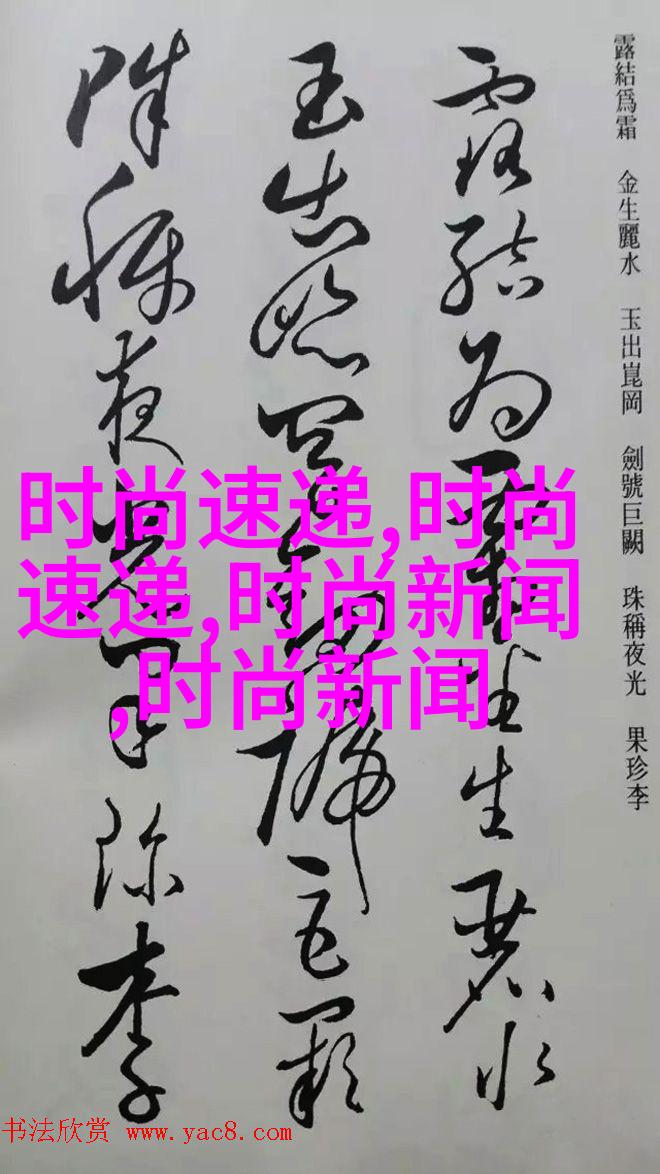 露結爲霜 金生麗水 玉出崑岡 劍號巨闕 珠稱夜光 果珍李
露結為霜金生麗水
玉出崑岡劍號巨闕
珠稱夜光果珍李
时尚速递,时尚
速递,时尚新闻
,时尚新闻
书法欣赏 www.yac8.com